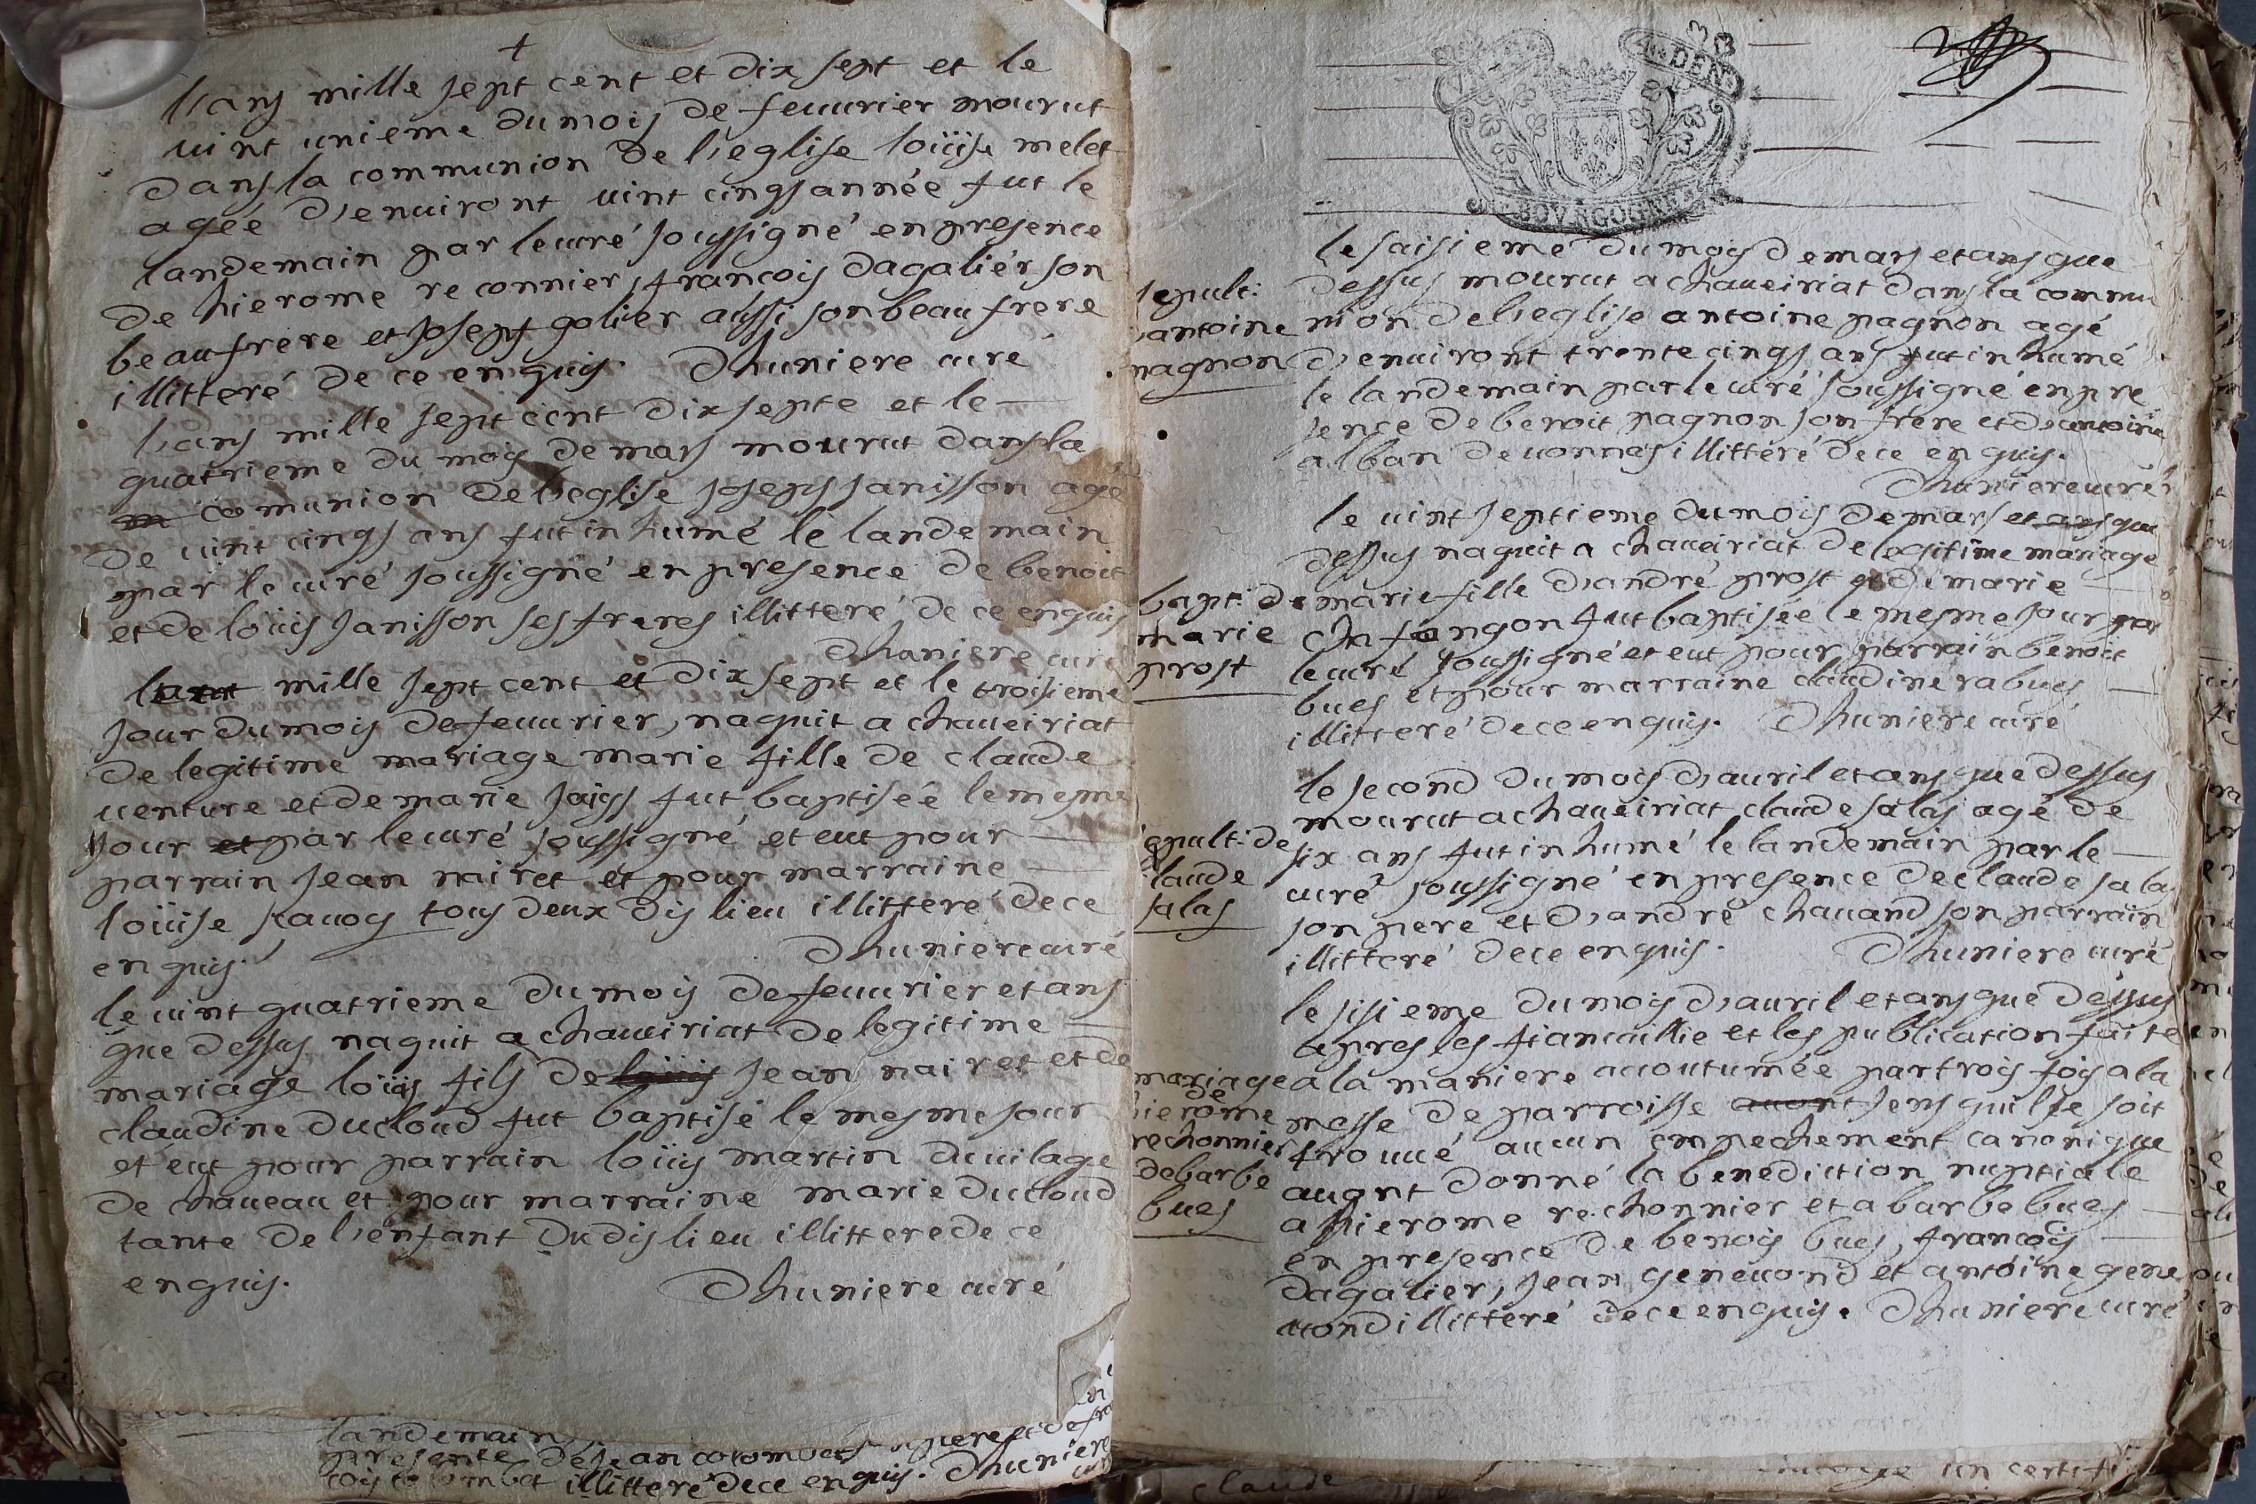 +
l'ans mille sept cent et dix sept et le
vint unieme du mois de feuurier mourut
dans la communion de l'eglise loüise melet
agée d'enuiront vint cinqs année fut le
landemain par le curé soussigné en presence
de hierome reconnier, francois dagaliér son
beaufrere et Josept golier aussi son beau frere
illitteré de ce enquis. Dhuniere curé
l'ans mille sept cent dix septe et le
quatrieme du mois de mars mourut dans la
communion de l'eglise Joseps Janisson agé
de vint cinqs ans fut inhumé le landemain
par le curé soussigné en presence de benoit
et de loüis Janisson ses freres illitteré de ce enquis
Dhuniere curé
lant mille sept cent et dix sept et le troisieme
Jour du mois de feuurier, naquit a chaueiriat
de legitime mariage marie fille de claude
uenture et de marie Jaigs fut baptiseé le mesme
Jour et par le curé soussigné et eut pour
parrain Jean nairet et pour marraine
loüise tous deux dis lieu illitteré de ce
enquis. Dhuniere curé
le vint quatrieme du mois de feuurier et ans
que dessus naquit a chaueiriat de legitime
mariage loüis fils de loüis Jean nairet et de
claudine ducloud fut baptisé le mesme Jour
et eut pour parrain loüis martin du uilage
de chaueau et pour marraine marie ducloud
tante de l'enfant dudis lieu illittere de ce
enquis. Dhuniere curé
landemain
presente de Jean colombet
illitteré de ce enquis. Dhuniere
BOVRGOGNE
le saisieme du mois de mars et ans que
dessus mourut a chaueiriat dans la commu
sepult:
antoine
pagnon
nion de l'eglise antoine pagnon agé
d'enuiront trente cinqs ans fut inhumé
le landemain par le curé soussigné en pre
sence de benoit pagnon son frere et d'antoine
alban de uonnas illitteré de ce enquis.
Dhuniere curé
le vint septieme du mois de mars et ans que
dessus naquit a chaueiriat de legitime mariage
bapt: de
marie
prost
marie fille d'andré prost et de marie
chafangon fut baptisée le mesme Jour par
le curé soussigné et eut pour parrain benoit
bues et pour marraine claudine rabues
illitteré de ce enquis. Dhuniere curé
le second du mois d'auril et ans que dessus
mourut a chaueiriat claude salas agé de
sepult: de
claude
salas
six ans fut inhumé le landemain par le
curé soussigné en presence de claude salas
son pere et d'andré chauand son parrain
illitteré de ce enquis. Dhuniere curé
le sisieme du mois d'auril et ans que dessus
apres les fiancaillie et les publication faite
mariage
de
hierome
rechonnier
de barbe
bues
a la maniere accoutumée par trois fois a la
messe de parroisse auont sens quil se soit
trouué aucun empechement canonique
auont donné la benediction nuptiale
a hierome rechonnier et a barbe bues
en presence de benois bues, francois
dagalier, Jean geneuond et antoine gene
uond illitteré de ce enquis. Dhuniere curé
un certifi
claude